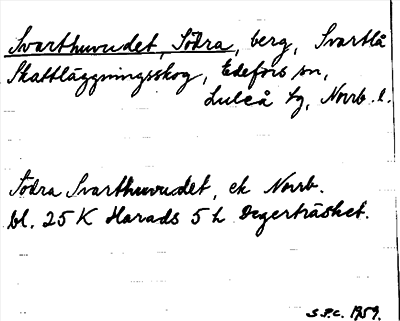 Svarthuvudet, Södra, berg, Svartlå
Skattläggningsskog, Edefors sn,
Luleå tg, Norrb. l.
Södra Svarthuvudet, ek Norrb.
bl. 25 K Harads 5 h Degerträsket.
S.P.C. 1959.